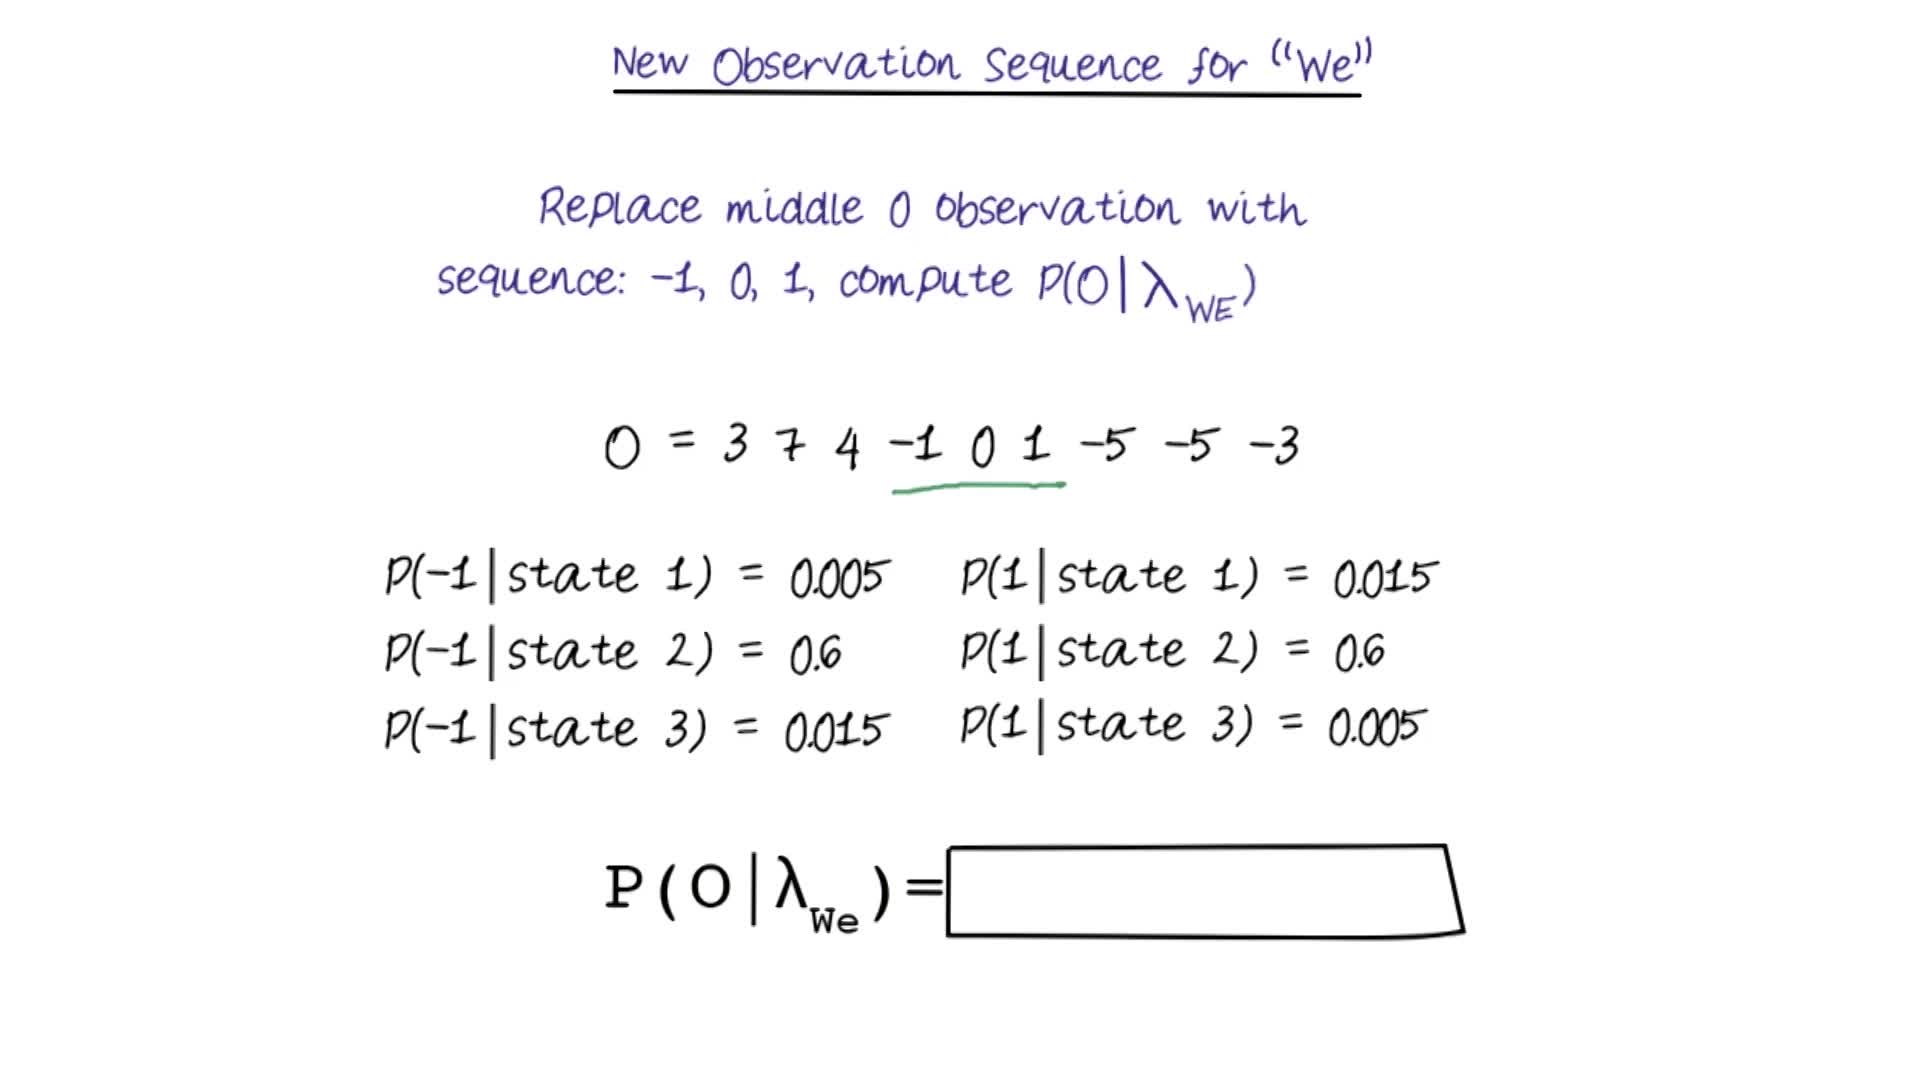 New Observation Sequence for "We"
Replace middle 0 observation with
sequence: -1, 0, 1, compute P(O|λ_WE)
O = 3 7 4 -1 0 1 -5 -5 -3
P(-1|state 1) = 0.005 P(1|state 1) = 0.015
P(-1|state 2) = 0.6 P(1|state 2) = 0.6
P(-1|state 3) = 0.015 P(1|state 3) = 0.005
P(O|λ_We)=